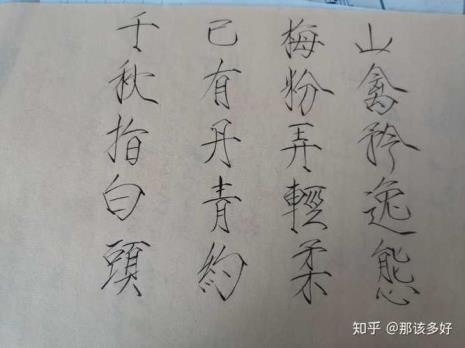 山禽矜逸態
梅粉弄輕柔
已有丹青約
千秋指白頭
知乎 @那该多好